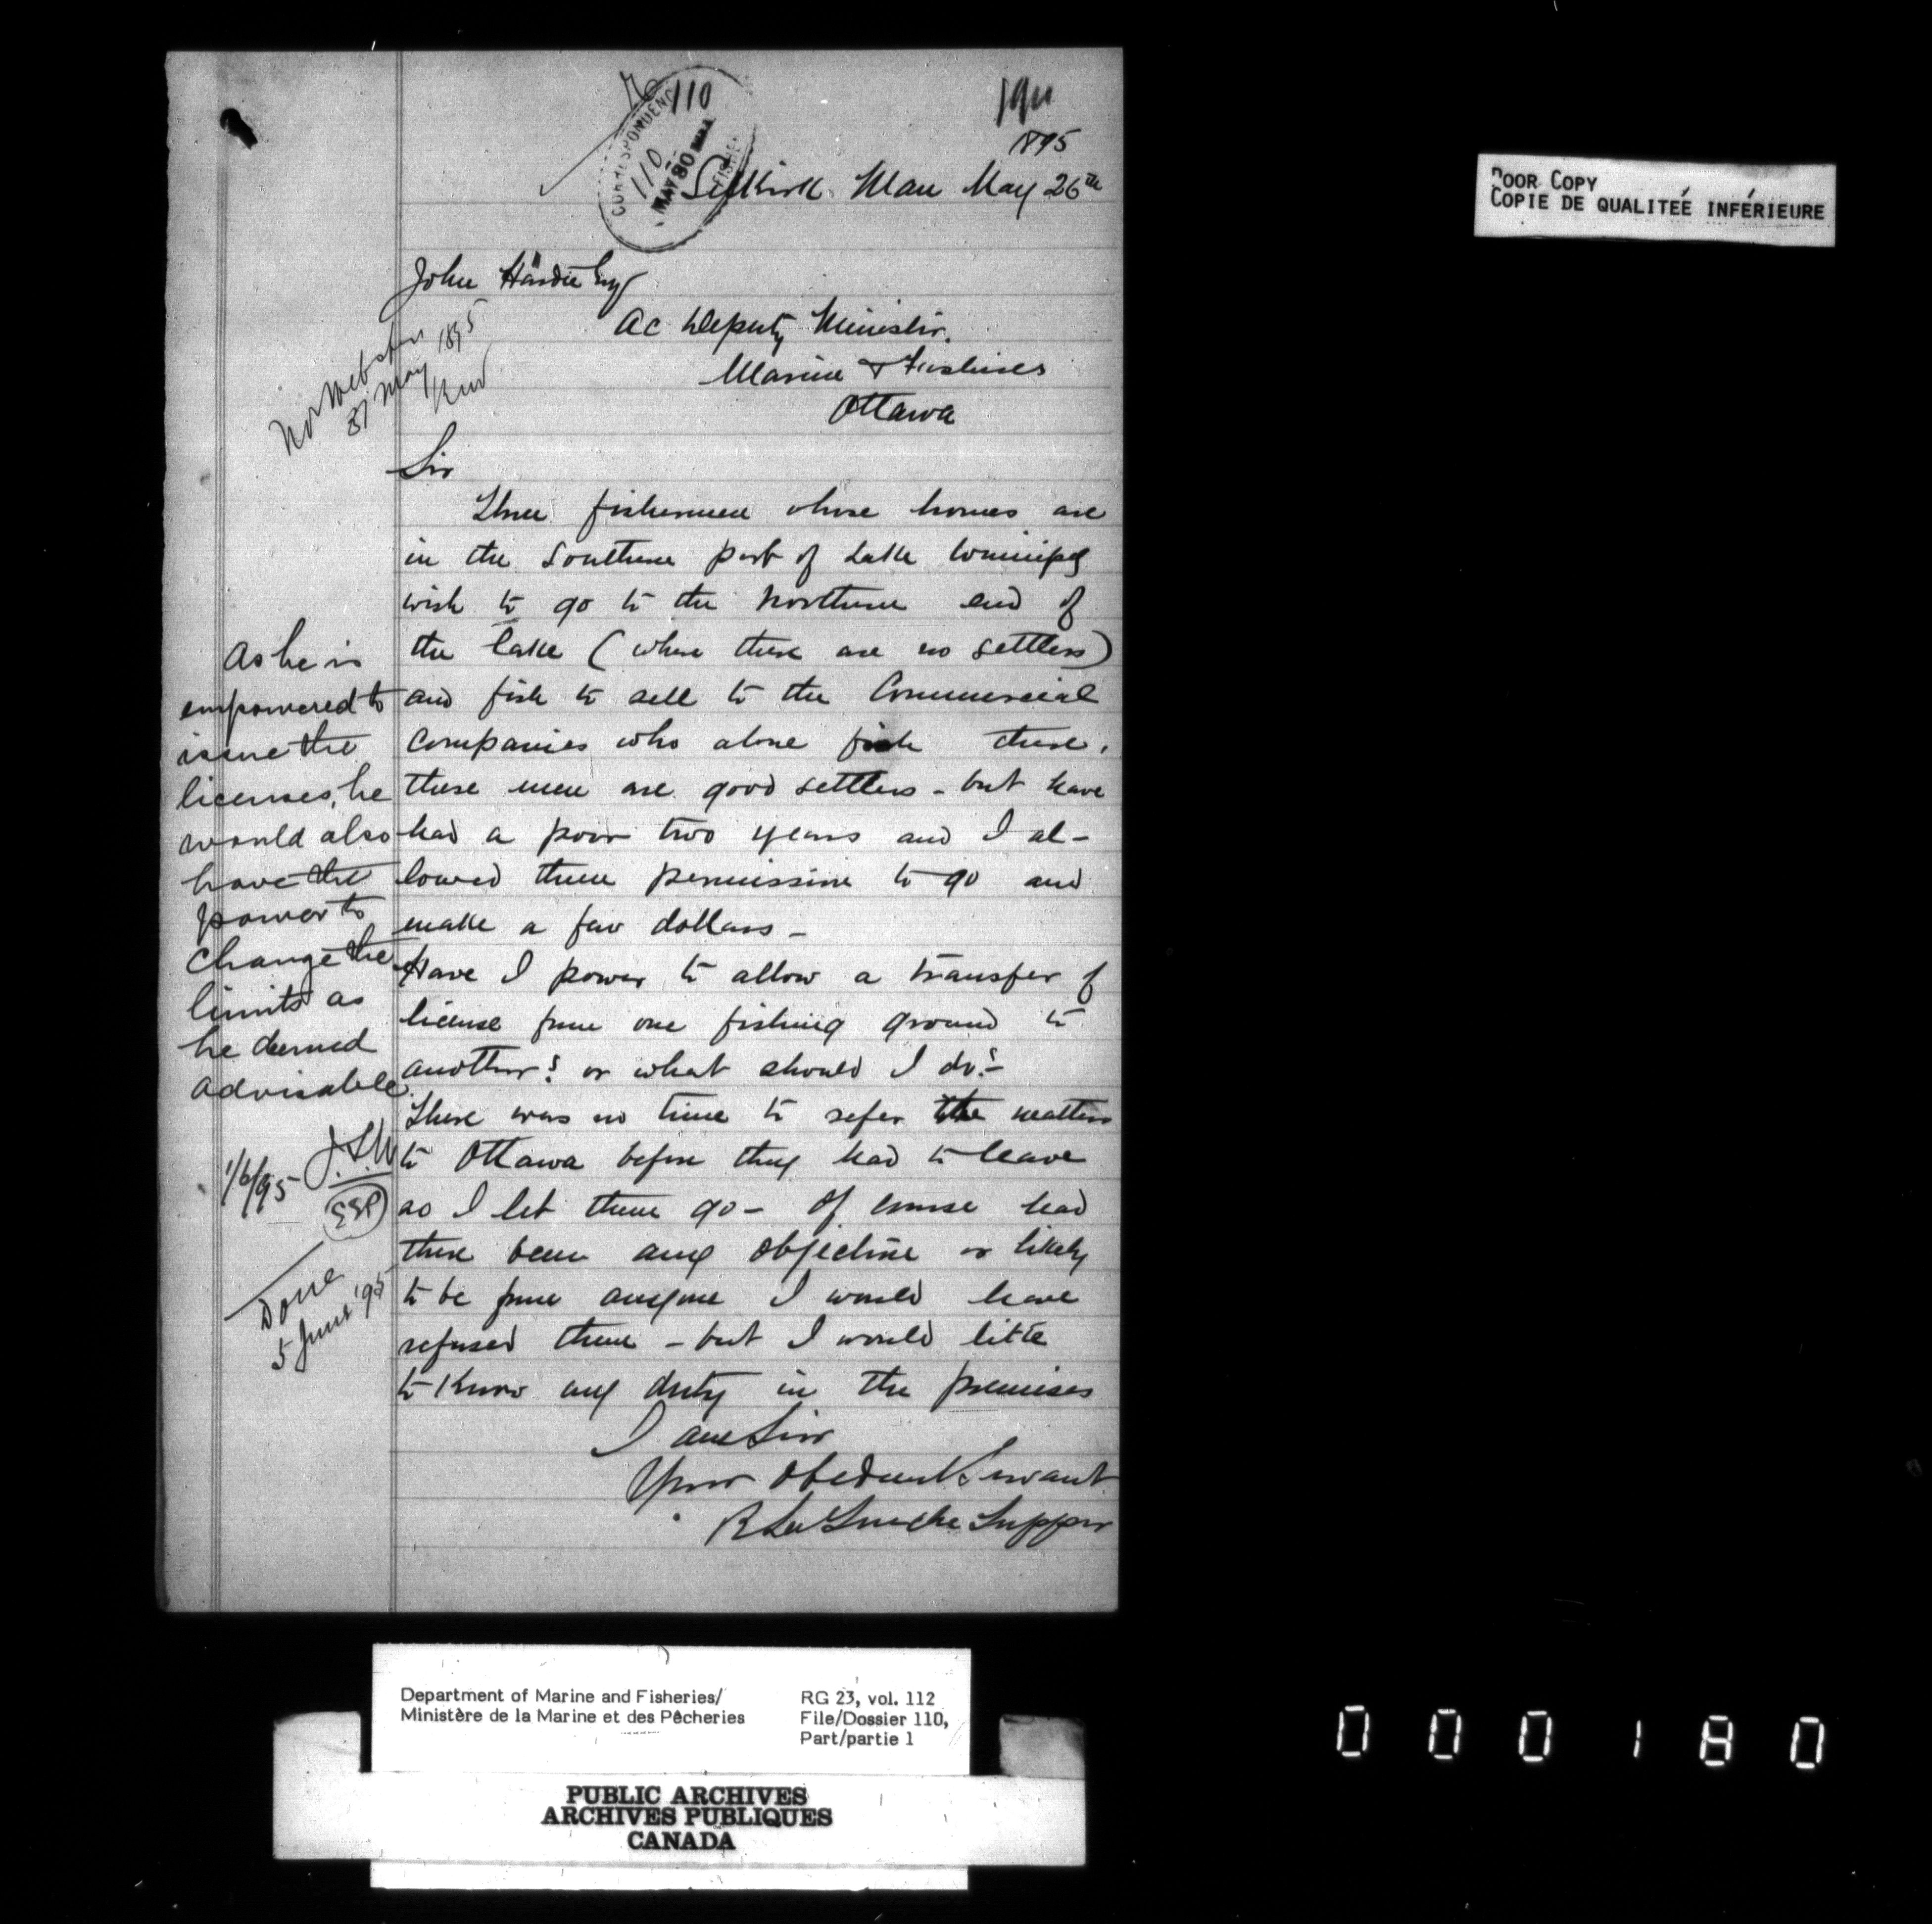 110
1895
CORRESPONDENCE
110
MAY 30
FISHE
Selkirk Man May 26th
John Hardie Esq
Ac Deputy Minister.
Marine & Fisheries
Ottawa
Mr Webster
31 May 1895
Sir
Three fishermen whose homes are
in the Southern part of Lake Winnipeg
wish to go to the Northern end of
the lake (where there are no settlers)
and fish to sell to the Commercial
Companies who alone fish there.
These men are good settlers - but have
had a poor two years and I al-
lowed them permission to go and
make a few dollars -
Have I power to allow a transfer of
license from one fishing ground to
another? or what should I do?-
There was no time to refer the matter
to Ottawa before they had to leave
so I let them go - Of course had
there been any objection or likely
to be from anyone I would have
refused them - but I would like
to know my duty in the premises
I am Sir
Your Obedient Servant
R LaTouche Tupper
As he is
empowered to
issue the
licenses, he
would also
have the
power to
change the
limits as
he deemed
advisable.
J.S.W
1/6/95
Done
5 June '95
POOR COPY
COPIE DE QUALITEÉ INFÉRIEURE
Department of Marine and Fisheries/
Ministère de la Marine et des Pêcheries
RG 23, vol. 112
File/Dossier 110,
Part/partie 1
PUBLIC ARCHIVES
ARCHIVES PUBLIQUES
CANADA
000180